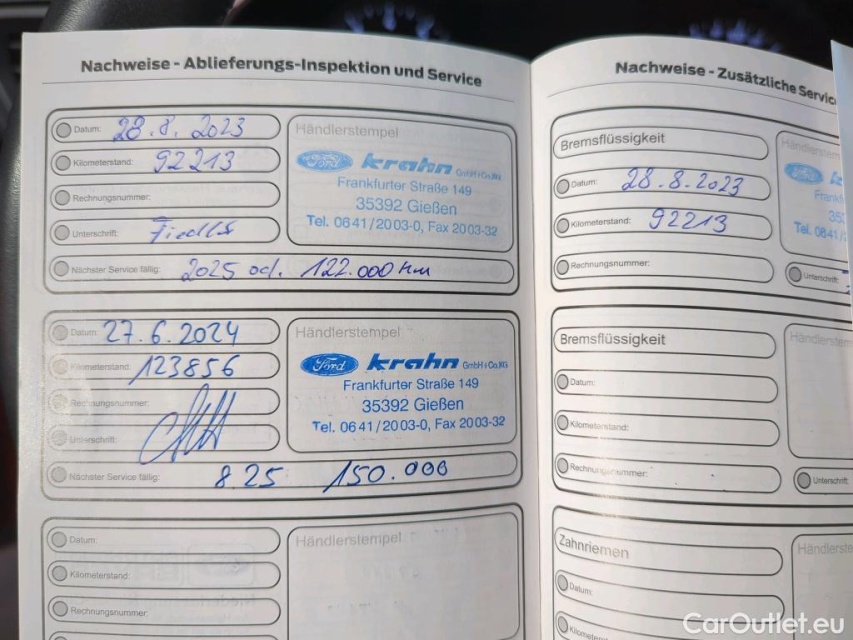 Nachweise - Ablieferungs-Inspektion und Service
Datum: 28.8.2023
Kilometerstand: 92213
Rechnungsnummer:
Unterschrift:
Nächster Service fällig: 2025 od. 122.000 km
Händlerstempel
Ford krahn GmbH+Co.KG
Frankfurter Straße 149
35392 Gießen
Tel. 0641/2003-0, Fax 2003-32
Datum: 27.6.2024
Kilometerstand: 123856
Rechnungsnummer:
Unterschrift:
Nächster Service fällig: 8 25 150.000
Händlerstempel
Ford krahn GmbH+Co.KG
Frankfurter Straße 149
35392 Gießen
Tel. 0641/2003-0, Fax 2003-32
Datum:
Kilometerstand:
Rechnungsnummer:
Händlerstempel
Nachweise - Zusätzliche Servic
Bremsflüssigkeit
Datum: 28.8.2023
Kilometerstand: 92213
Rechnungsnummer:
Händlerstem
Ford k
Frankf
35
Tel. 0641/
Unterschrift:
Bremsflüssigkeit
Datum:
Kilometerstand:
Rechnungsnummer:
Händlerstem
Unterschrift:
Zahnriemen
Datum:
Kilometerstand:
Händlerste
CarOutlet.eu